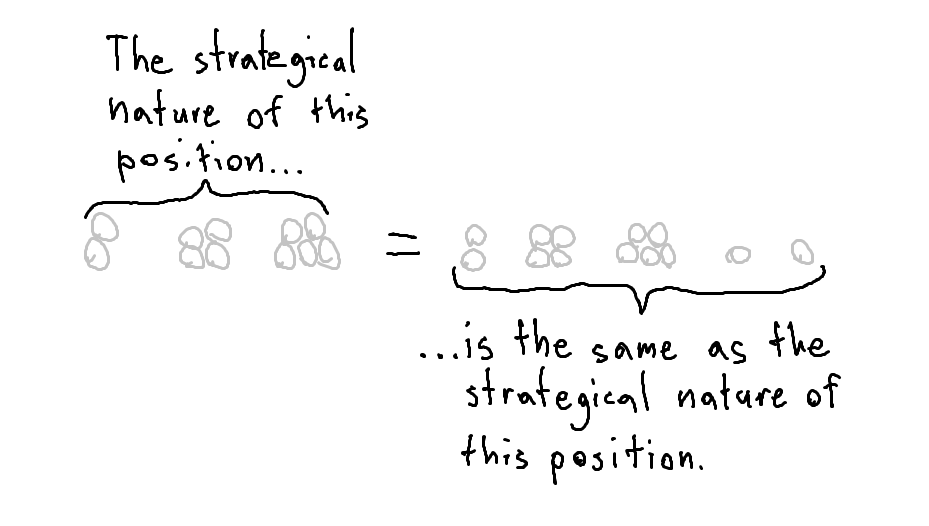 The strategical
nature of this
position...
=
...is the same as the
strategical nature of
this position.